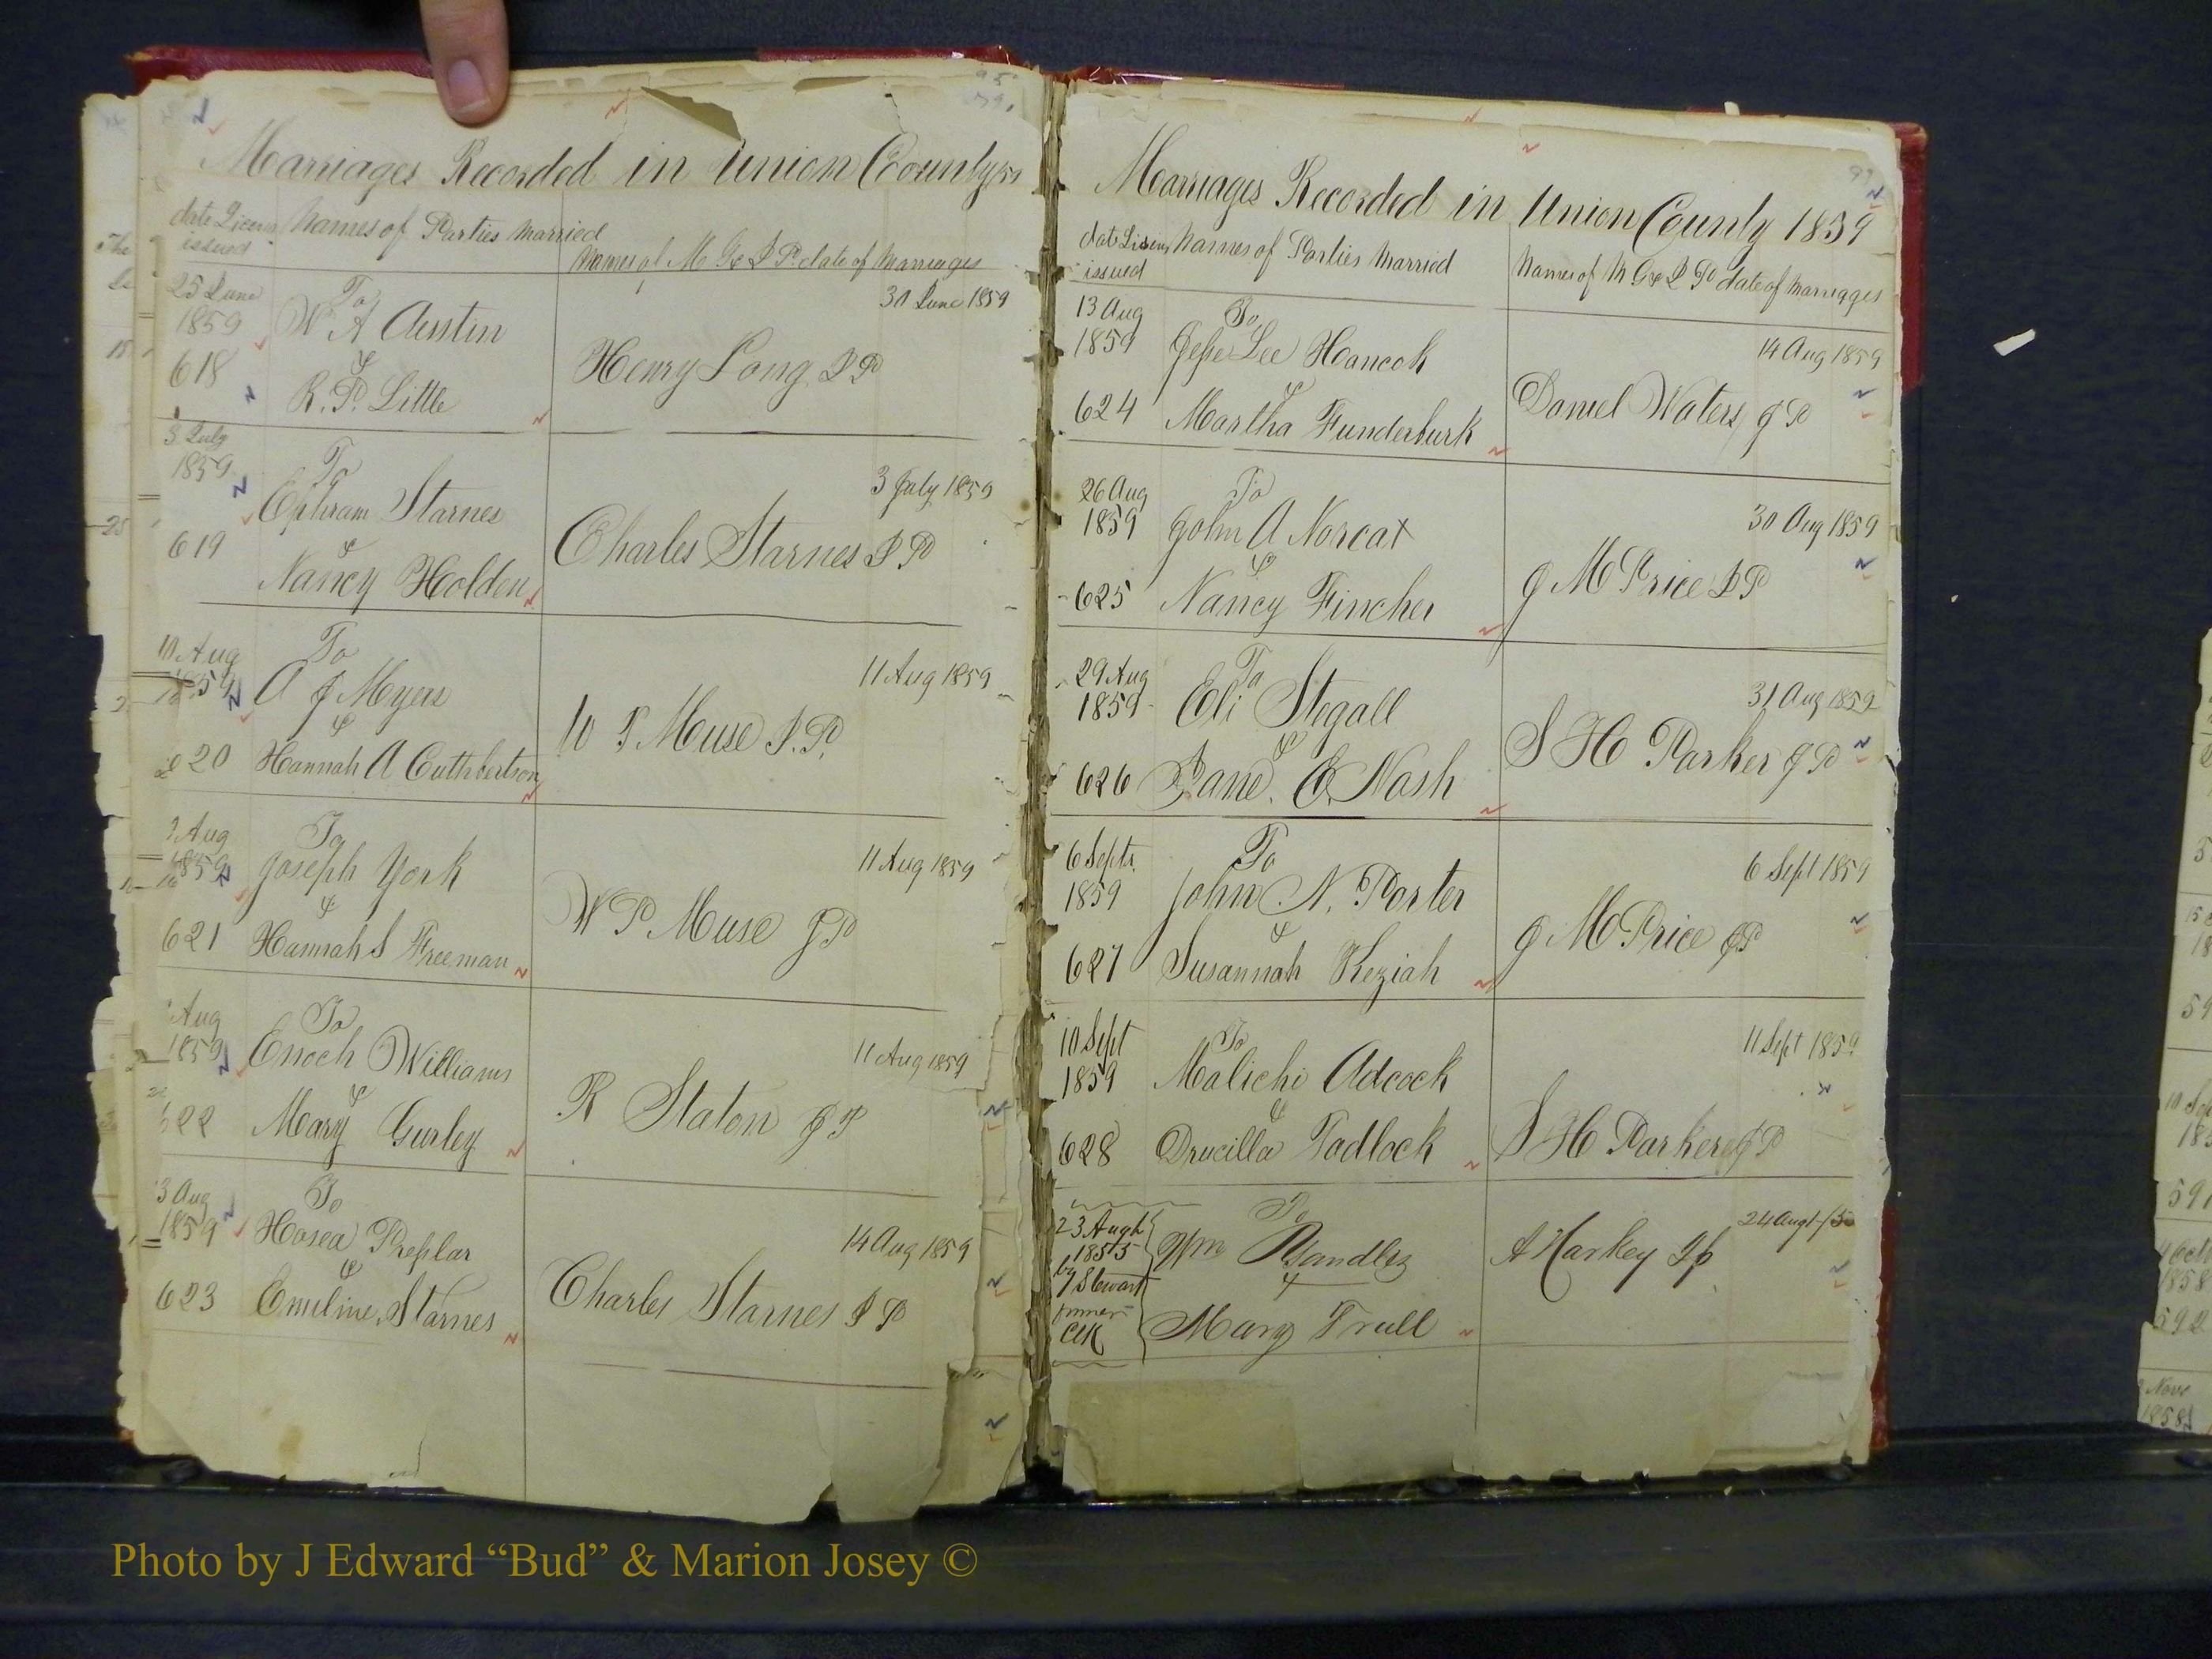 Marriages Recorded in Union County
date Licens Names of Parties Married
issued
Names of M G & J P. date of Marriages
25 June
1859
To
W A Austin
&
R. P. Little
618
Henry Long J P
30 June 1859
3 July
1859
To
Ephram Starnes
&
Nancy Holden
619
Charles Starnes J P
3 July 1859
10 Aug
1859
To
A J Myers
&
Hannah A Cuthbertson
620
W P Muse J. P.
11 Aug 1859
Aug
1859
To
Joseph York
&
Hannah S Freeman
621
W P Muse J P
11 Aug 1859
Aug
1859
To
Enoch Williams
&
Mary Gurley
622
R Staton J P
11 Aug 1859
3 Aug
1859
To
Hosea Presslar
&
Emeline Starnes
623
Charles Starnes J P
14 Aug 1859
Marriages Recorded in Union County 1859
date Lisens Names of Parties Married
issued
Names of M G & J P date of Marriages
13 Aug
1859
To
Jesse Lee Hancok
&
Martha Funderburk
624
Daniel Waters J P
14 Aug 1859
26 Aug
1859
To
John A Norcat
&
Nancy Fincher
625
J M Price J P
30 Aug 1859
29 Aug
1859
To
Eli Stegall
&
Jane C Nash
626
S H Parker J P
31 Aug 1859
6 Sept
1859
To
John N. Porter
&
Susannah Keziah
627
J M Price J P
6 Sept 1859
10 Sept
1859
To
Malichi Adcock
&
Drucilla Tadlock
628
S H Parker J P
11 Sept 1859
23 Augt
1855
by
J Stewart
former
Clk
To
Wm Yandles
&
Mary Trull
A Harkey J P
24 Augt
Photo by J Edward “Bud” & Marion Josey ©